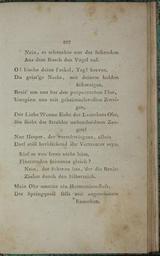 Nein, es schwankte nur der
Aus dem Busch den Vogel auf.
O! lösche deine Fackel, Tag! hervor,
Du geist'ge Nacht, mit deinem holden
Schweigen,
Breit' um uns her den purpurrothen Flor,
mit geheimnißvollen Zwei-
gen,
Der Liebe Wonne flieht des Lauschers Ohr,
Sie flieht der Strahlen unbescheidnen Zeu-
gen!
Nur Hesper, der verschwiegene, allein
Darf still herblickend ihr Vertrauter seyn.
Rief es von ferne nicht leise,
Flüsternden Stimmen gleich?
Nein, der Schwan ists, der die Kreise
Ziehet durch den Silberteich.
Mein Ohr umtönt ein Harmonienfluß,
Der Springquell fällt mit angenehmem
Rauschen,